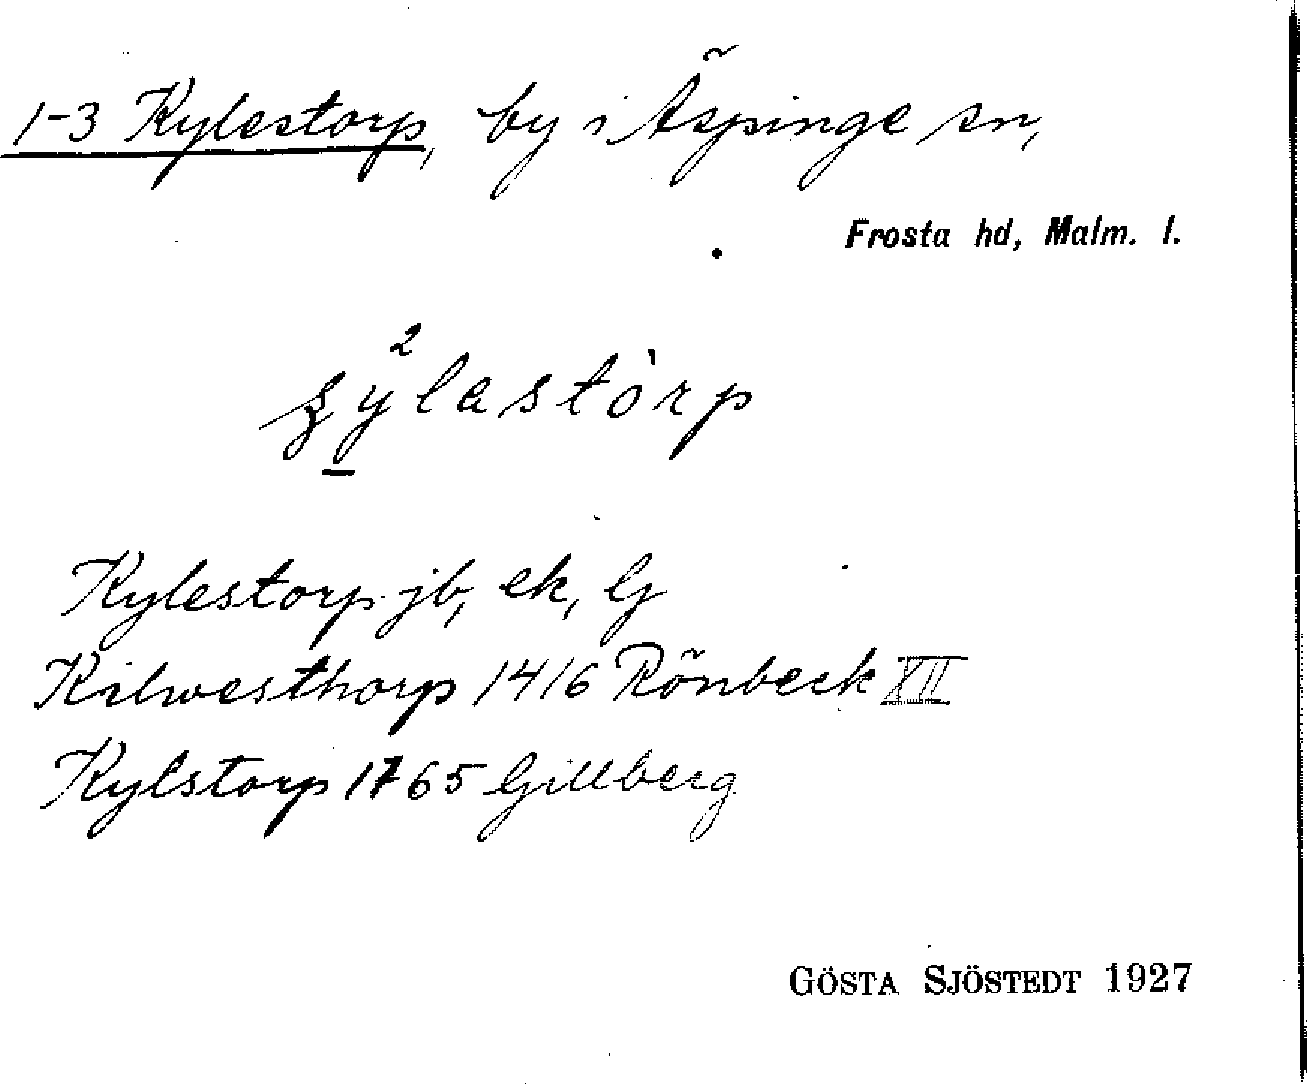 1-3 Kylestorp, by i Äspinge sn,
Frosta hd, Malm. l.
Kylestorp jb, ek, Gj
Kilwesthorp 1416 Rönbeck XII
Kylstorp 1765 Gillberg
GÖSTA SJÖSTEDT 1927